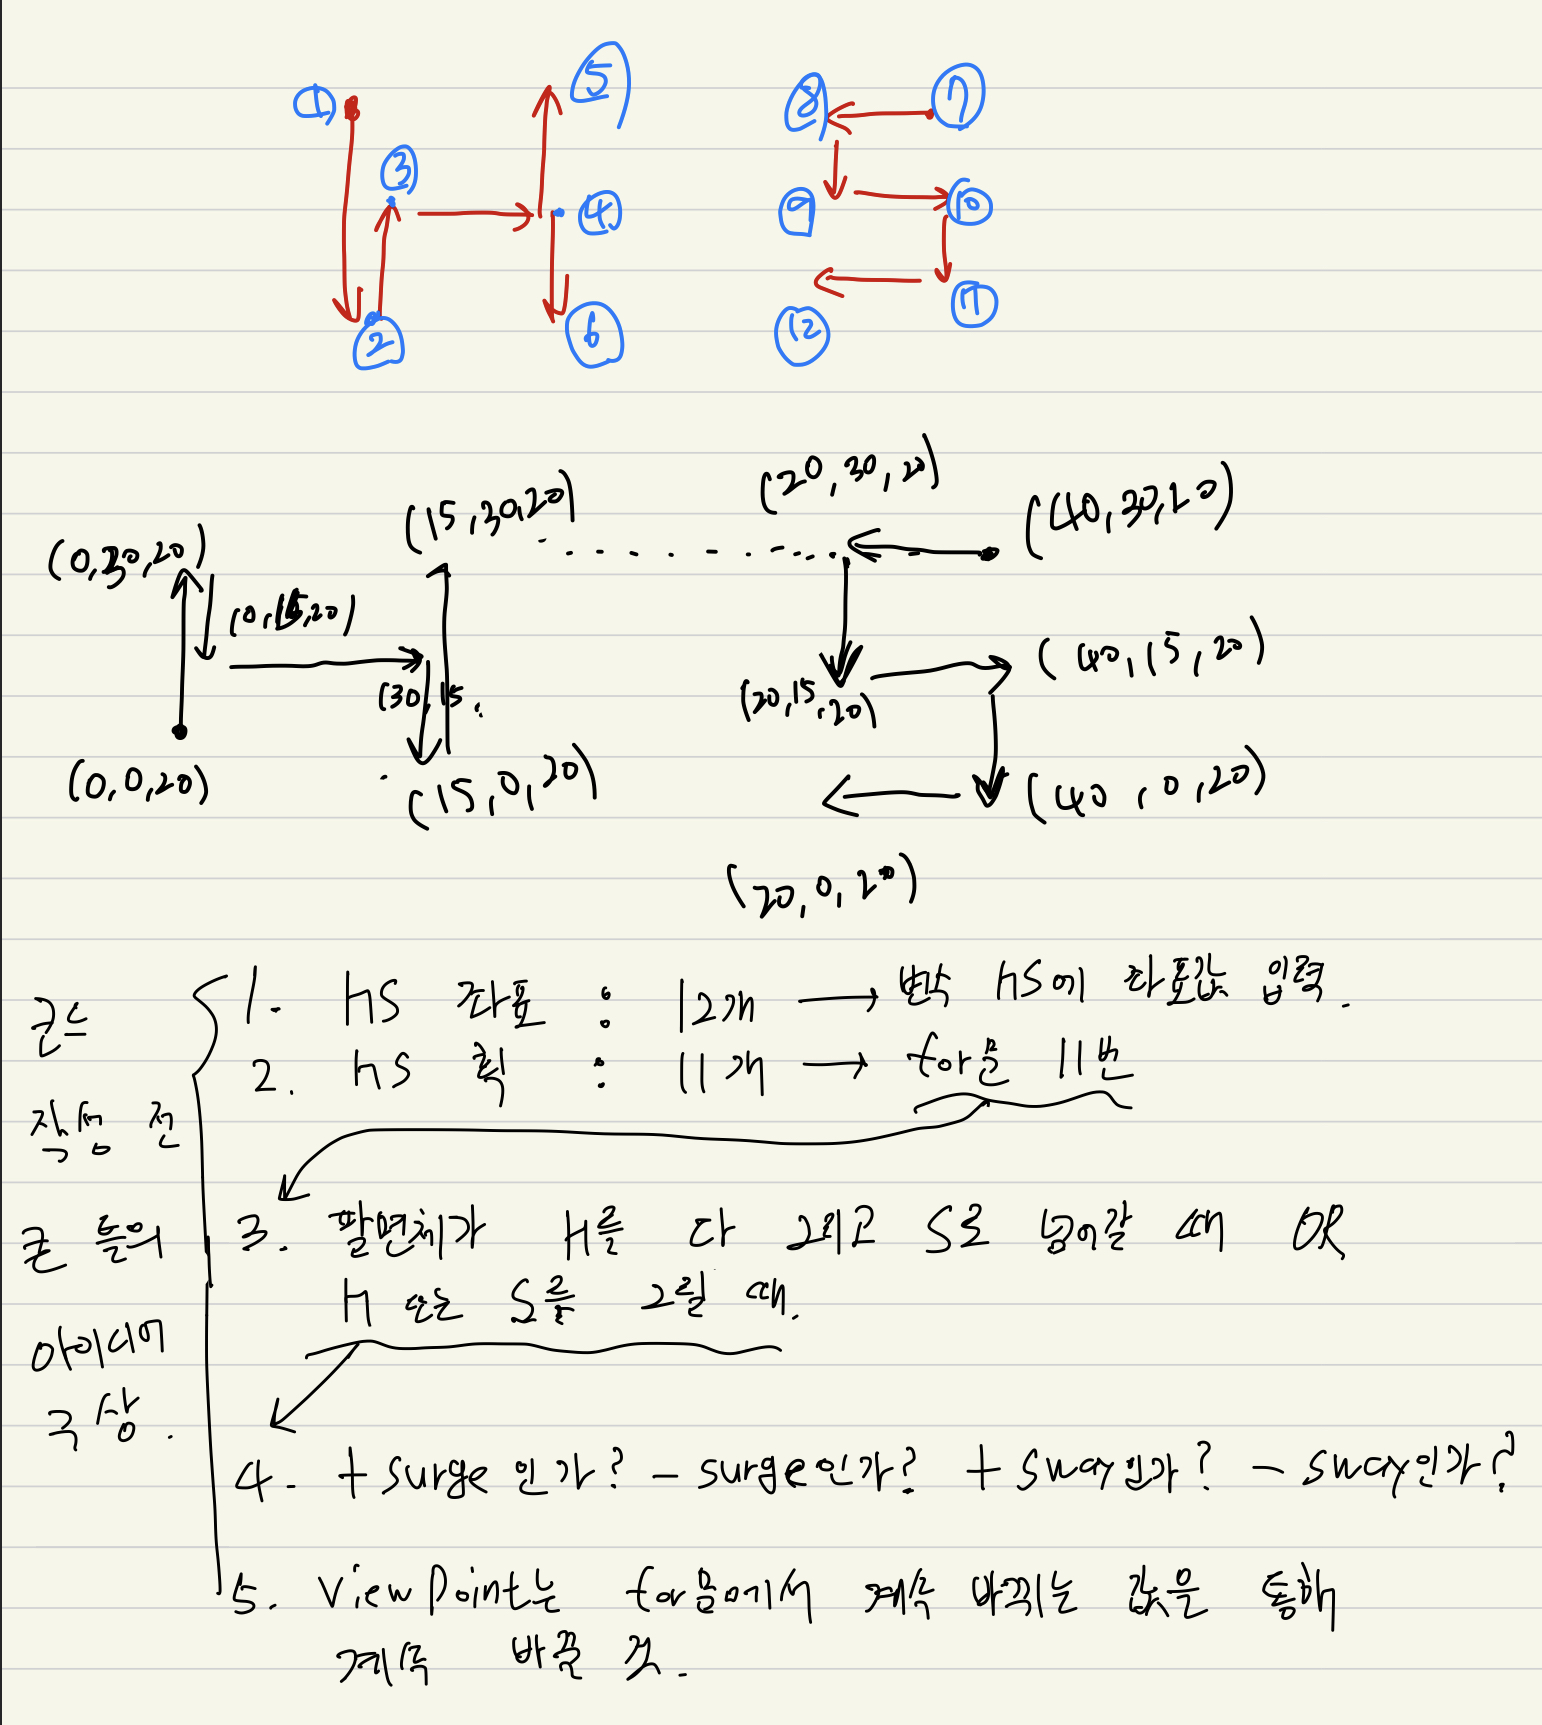 ① ② ③ ④ ⑤ ⑥ ⑦ ⑧ ⑨ ⑩ ⑪ ⑫
(0,30,20) (15,30,20) (20,30,20) (40,30,20)
(0,15,20) (30,15. (20,15,20) (40,15,20)
(0,0,20) (15,0,20) (20,0,20) (40,0,20)
코드
작성 전
큰 틀의
아이디어
구상.
1. HS 좌표 : 12개 → 변수 HS에 좌표값 입력.
2. HS 획 : 11개 → for문 11번
3. 팔면체가 H를 다 그리고 S로 넘어갈 때 OR
H 또는 S를 그릴 때.
4. + surge인가? - surge인가? + sway인가? - sway인가?
5. View Point는 for문에서 계속 바뀌는 값을 통해
계속 바꿀 것.